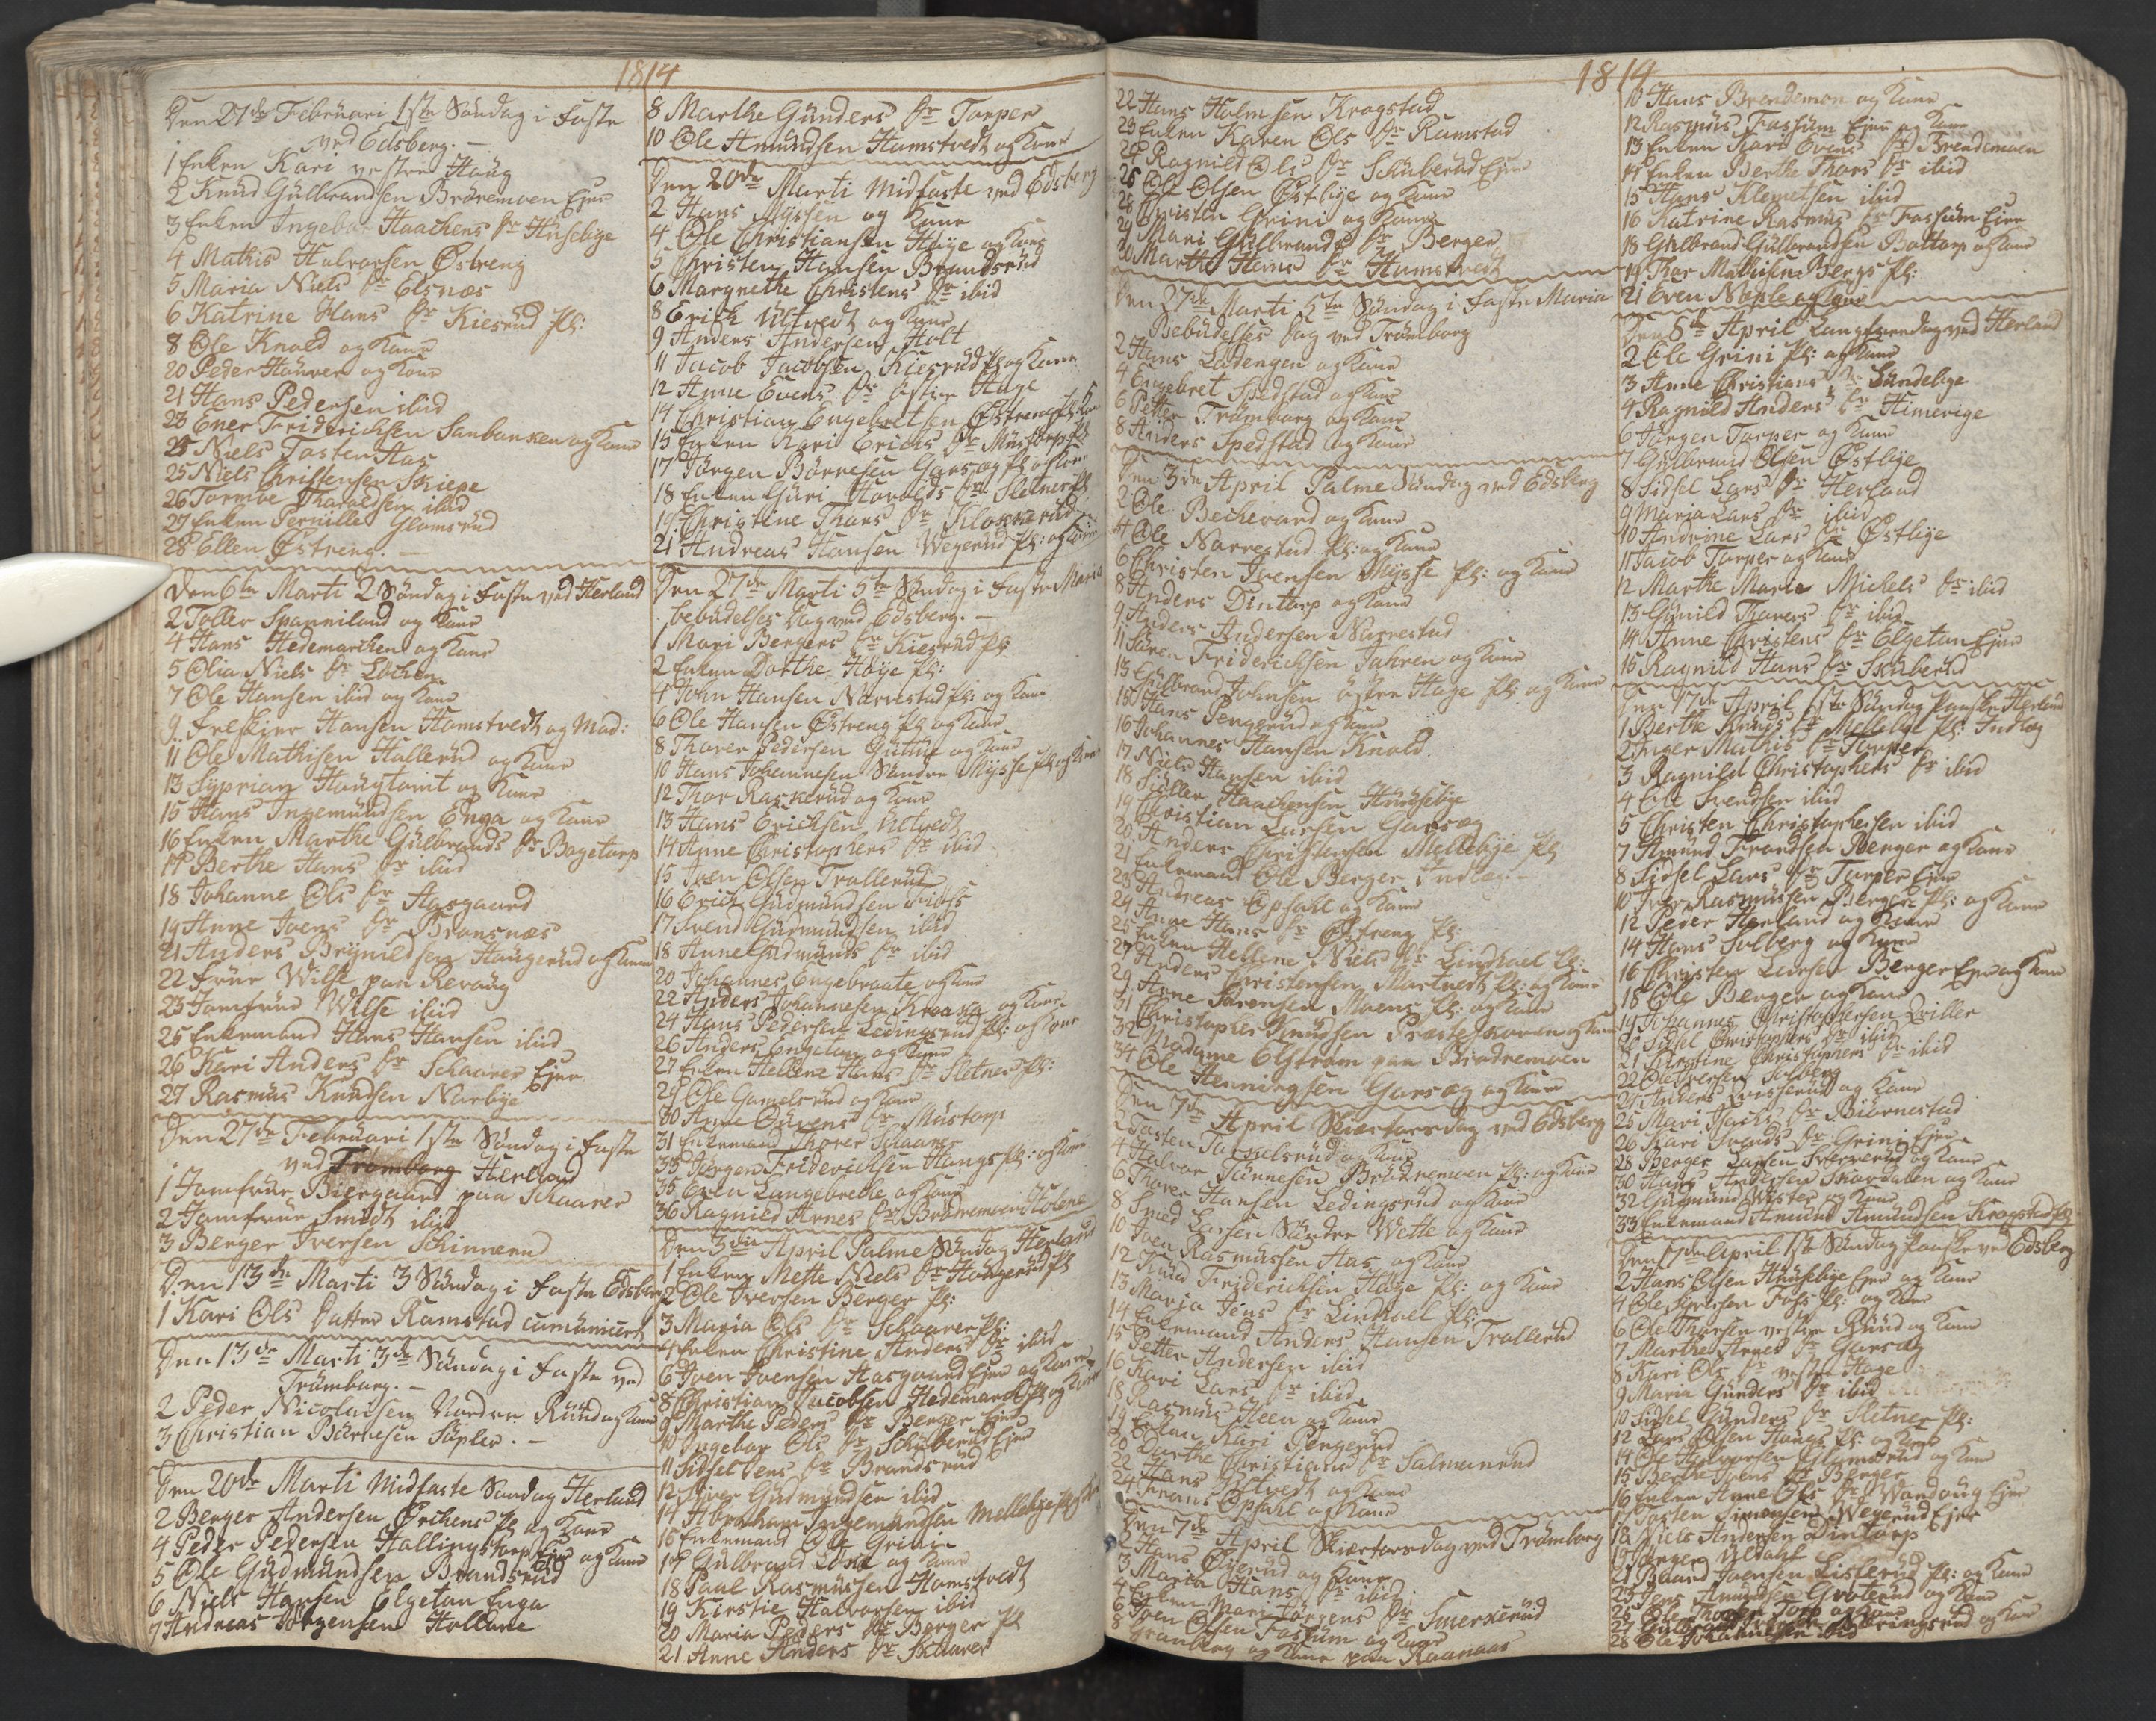 1814
Den 27de Februari 1ste Søndag i Faste
ved Edsberg. –
1 Enken Kari vestre Haug
2 Knud Gulbrandsen Brøremoen Ejer
3 Enken Ingebor Haachens Dr Huselige
4 Mathis Halvorsen Østreng
5 Maria Niels Dr Elsnæs
6 Katrine Hans Dr Kiesrud Pl:
8 Ole Knold og Kone
20 Peder Haaver og Kone
21 Hans Pedersen ibid
23 Ener Friderichsen Sanbanken og Kone
24 Niels Tosten Aas
25 Niels Christensen Skiepe
26 Tormoe Tharaldsen ibid
27 Enken Pernille Glomsrud
28 Ellen Østreng. –
Den 6te Marti 2 Søndag i Faste ved Herland
2 Toller Spanniland og Kone
4 Hans Hedemarchen og Kone
5 Olia Niels Dr Lochen
7 Ole Hansen ibid og Kone
9 Hansen Hamstvedt og Mad:
11 Ole Mathisen Hallerud og Kone
13 Syprian Haugtomt og Kone
15 Hans Ingemundsen Enga og Kone
16 Enken Marthe Gulbrands Dr Bogetorp
17 Berthe Hans Dr ibid
18 Johanne Ols Dr Aasgaard
19 Anne Joens Dr Bransnæs
21 Anders Brynildsen Haugerud og Kone
22 Frue Wilse paa Revaug
23 Jomfrue Wilse ibid
25 Enkemand Hans Hansen ibid
26 Kari Anders Dr Schaarer Ejer
27 Rasmus Knudsen Narbye
Den 27de Februari 1ste Søndag i Faste
ved Tromborg Herland
1 Jomfrue Biergaard paa Schaarer
2 Jomfrue Smidt ibid
3 Berger Iversen Schinnerud
Den 13de Marti 3 Søndag i Faste Edsberg
1 Kari Ols Datter Ramstad cumunicert
Den 13de Marti 3de Søndag i Faste ved
Trømborg. –
2 Peder Nicolaisen Nordre Ruud og Kone
3 Christian Børnesen Supler. –
Den 20de Marti Midfaste Søndag Herland
2 Berger Andersen Ørchens Pl og Kone
4 Peder Pedersen Hallingstorp Ejer og Kone
5 Ole Gudmundsen Brandsrud
6 Niels Hansen Elgetun Enga
7 Andreas Jørgensen Hollane
8 Marthe Gunders Dr Torper
10 Ole Amundsen Hamstvedt og Kone
Den 20de Marti Midfaste ved Edsberg
2 Hans Myssen og Kone
4 Ole Christiansen Hage og Kone
5 Christen Hansen Brandsrud
6 Margrethe Christens Dr ibid
8 Erich Ultvedt og Kone
9 Anders Andersen Holt
11 Jacob Jacobsen Kiesrud Pl og Kone
12 Anne Evens Dr Østre Hage
14 Christian Engebretsen Østreng Pl Kone
15 Enken Kari Erichs Dr Mustorp Pl
17 Jørgen Børnesen Garseg Pl og Kone
18 Enken Guri Haavels Dr Sletner Pl
19 Christine Thors Dr Klokkerud
21 Andreas Hansen Wegerud Pl: og Kone
Den 27de Marti 5te Søndag i Faste Maria
bebudelses Dag ved Edsberg. –
1 Mari Bergers Dr Kiesrud Pl
2 Enken Dorthe Høje Pl:
4 John Hansen Narvestad Pl: og Kone
6 Ole Hansen Østreng Pl og Kone
8 Thorer Pedersen Gutue og Kone
10 Hans Johannesen Søndre Mysse Pl og Kone
12 Thor Raskerud og Kone
13 Hans Erichsen Ultvedt
14 Anne Christophers Dr ibid
15 Iver Olsen Trollerud
16 Erich Gudmundsen Fos
17 Svend Gudmundsen ibid
18 Anne Gudmunds Dr ibid
20 Johannes Engebraate og Kone
22 Anders Johannesen Kraasa og Kone
24 Hans Pedersen Ledingsrud Pl: og Kone
26 Anders Engetun og Kone
27 Enken Hellene Hans Dr Sletner Pl:
29 Ole Gamelsrud og Kone
30 Anne Eivens Dr Mustorp
31 Enkemand Thorer Schaarer
33 Jørgen Friderichsen Haugs Pl: og Kone
35 Even Langebreche og Kone
36 Ragnild Arnes Dr Brødremoen Holene
Den 3die April Palme Søndag Herland
1 Enken Mette Niels Dr Haugerud Pl
2 Ole Iversen Berger Pl:
3 Maria Ols Dr Schaarer Pl:
4 Enken Christine Anders Dr ibid
6 Joen Joensen Aasgaard Ejer og Kone
8 Christian Jacobsen Hedemarch Pl og Kone
9 Marthe Peders Dr Berger Ejer
10 Ingebor Ols Dr Schuberud Ejer
11 Sidsel Jens Dr Brandsrud
12 Iver Gudmundsen ibid
14 Abraham Ingemundsen Mellebye Pl og Kone
15 Enkemand Ole Grini
17 Gulbrand Lund og Kone
18 Paul Rasmussen Hamstvedt
19 Kirstie Halvorsen ibid
20 Maria Peders Dr Berger Pl
21 Anne Anders Dr Skaarer
1814
22 Hans Holmsen Krogstad
23 Enken Karen Ols Dr Ramstad
24 Ragnild Ols Dr Schuberud Ejer
26 Ole Olsen Østbye og Kone
28 Christen Grini og Kone
29 Mari Gulbrands Dr Berger
30 Marthe Hans Dr Hamstvedt
Den 27de Marti 5te Søndag i Faste Maria
Bebudelses Dag ved Trømborg
2 Hans Ladengen og Kone
4 Engebret Spedstad og Kone
6 Petter Trømborg og Kone
8 Anders Spedstad og Kone
Den 3die April Palme Søndag ved Edsberg
2 Ole Bechevard og Kone
4 Ole Narrestad Pl: og Kone
6 Christen Svensen Mysse Pl: og Kone
8 Anders Dintorp og Kone
9 Anders Andersen Narrestad
11 Søren Friderichsen Jahren og Kone
13 Gulbrand Johnsen østre Hage Pl: og Kone
15 Hans Pengerud og Kone
16 Johannes Hansen Knold
17 Niels Hansen ibid
18 Søller Haachensen Huuselige
19 Christian Larsen Garseg
20 Anders Christensen Mellebye Pl
21 Enkemand Ole Berger Indlæg. –
23 Andreas Opsahl og Kone
24 Anne Hans Dr Østreng Pl:
25 Enken Hellene Niels Dr Lindhoel Pl:
27 Anders Christensen Martvedt Pl: og Kone
29 Arne Sørensen Moens Pl: og Kone
31 Christopher Knudsen Præsteskoven og Kone
32 Madame Elstrøm paa Brødremoen
34 Ole Henningsen Garseg og Kone
Den 7de April Skiertorsdag ved Edsberg
2 Tosten Tarvelsrud og Kone
4 Halvor Tønnesen Brødremoen Pl: og Kone
6 Thorer Hansen Ledingsrud og Kone
8 Smed Larsen Søndre Wette og Kone
10 Joen Rasmussen Aas og Kone
12 Knud Friderichsen Hage Pl: og Kone
13 Maria Jens Dr Lindhoel Pl:
14 Enkemand Anders Hansen Trollerud
15 Petter Andersen ibid
16 Kari Lars Dr ibid
18 Rasmus Steen og Kone
19 Enken Kari Pengerud
20 Dorthe Christians Dr Salmonrud
22 Hans Ultvedt og Kone
24 Frans Opsahl og Kone
Den 7de April Skiertorsdag ved Trømborg
2 Hans Øyerud og Kone
3 Maria Hans Dr ibid
4 Enken Mari Jørgens Dr Smerkerud
6 Joen Olsen Fossum og Kone
8 Granberg og Kone paa Raanaas
10 Hans Brendemoen og Kone
12 Rasmus Fossum Ejer og Kone
13 Enken Kari Evens Dr Brendemoen
14 Enken Berthe Thors Dr ibid
15 Hans Klemetsen ibid
16 Katrine Rasmus Dr Fossum Ejer
18 Gulbrand Gulbrandsen Bottorp og Kone
19 Thor Mathisen Bergs Pl:
21 Even Næple og Kone
Den 8de April Langfredag ved Herland
2 Ole Grini Pl: og Kone
3 Anne Christians Dr Sundebye
4 Ragnild Anders Dr Himerige
6 Jørgen Torper og Kone
7 Gulbrand Olsen Østbye
8 Sidsel Lars Dr Herland
9 Maria Lars Dr ibid
10 Andrine Lars Dr Østbye
11 Jacob Torper og Kone
12 Marthe Marie Michels Dr ibid
13 Gunild Thorers Dr ibid
14 Anne Christens Dr Elgetun Ejer
15 Ragnild Hans Dr Skuberud
Den 17de April 1ste Søndag Paaske Herland
1 Berthe Knuds Dr Mellebye Pl: Indlæg
2 Inger Mathis Dr Torper
3 Ragnild Christophers Dr ibid
4 Ole Svendsen ibid
5 Christen Christophersen ibid
7 Amund Frandsen Berger og Kone
8 Sidsel Lars Dr Torper Ejer
10 Iver Rasmussen Berger Pl: og Kone
12 Peder Herland og Kone
14 Hans Solberg og Kone
16 Christen Larsen Berger Ejer og Kone
18 Ole Berger og Kone
19 Johannes Christophersen Qviller
20 Sidsel Christophers Dr ibid
21 Kirstine Christophers Dr ibid
22 Ole Iversen Solberg
24 Anders Qvisserud og Kone
25 Mari Isachs Dr Biørnestad
26 Kari Svends Dr Grini Ejer
28 Berger Larsen Sververud og Kone
30 Hans Andersen Skovdalen og Kone
32 Gudmund Wister og Kone
33 Enkemand Amund Amundsen Krogstad Pl
Den 17de April 1ste Søndag Paaske ved Edsberg
2 Hans Olsen Huuselige Ejer og Kone
4 Ole Syversen Fos Pl: og Kone
6 Ole Thorsen vestre Ruud og Kone
7 Marthe Arnes Dr Garseg
8 Kari Ols Dr vestre Hage
9 Maria Gunders Dr ibid
10 Sidsel Gunders Dr Sletner Pl:
12 Lars Olsen Haugs Pl: og Kone
14 Ole Halvorsen Glomsrud og Kone
15 Berthe Joens Dr Berger
16 Enken Anne Ols Dr Wandaug Ejer
17 Tosten Simonsen Wegerud Ejer
18 Niels Andersen Dintorp
19 Berger Uldahl
21 Baard Joensen Listerud Pl: og Kone
23 Jens Amundsen Groterud og Kone
25 Ole Thorer Torp og Kone
27 og Kone
28 Ole Johannesen ibid